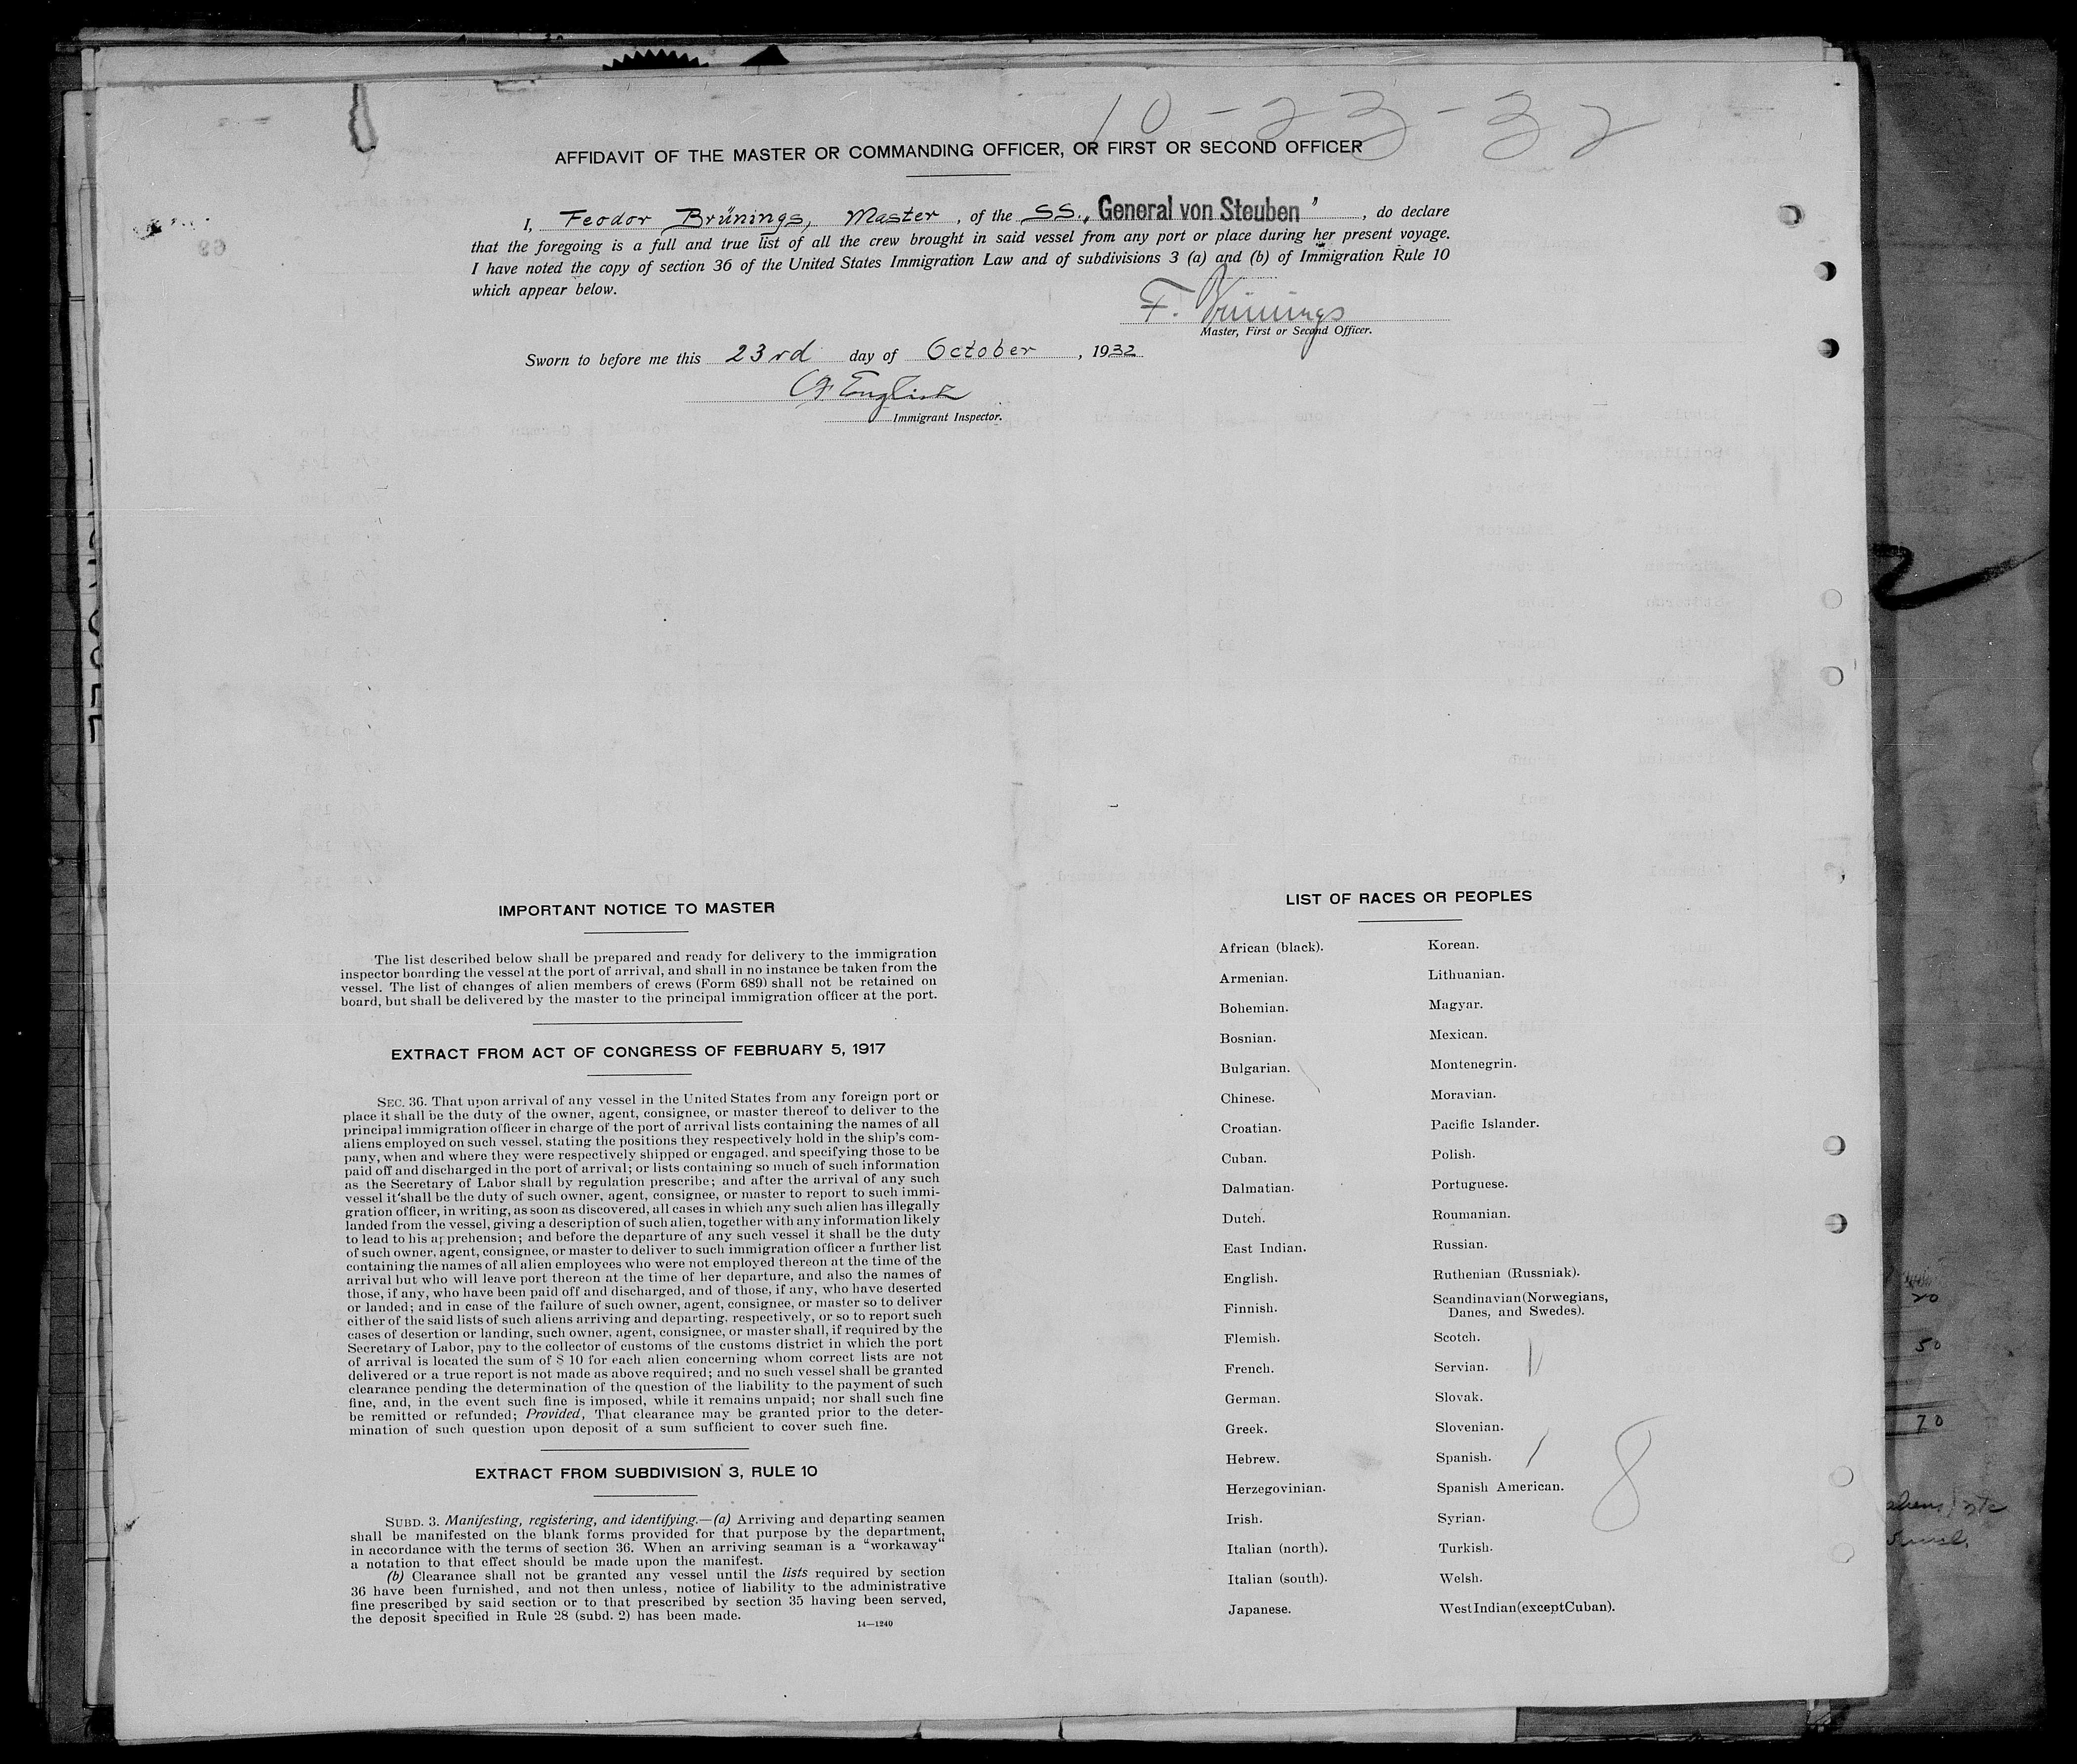 10-23-32
AFFIDAVIT OF THE MASTER OR COMMANDING OFFICER, OR FIRST OR SECOND OFFICER
I, Feodor Brünings, Master, of the SS. „General von Steuben", do declare
that the foregoing is a full and true list of all the crew brought in said vessel from any port or place during her present voyage.
I have noted the copy of section 36 of the United States Immigration Law and of subdivisions 3 (a) and (b) of Immigration Rule 10
which appear below.
F. Brünings
Master, First or Second Officer.
Sworn to before me this 23rd day of October, 1932
English
Immigrant Inspector.
IMPORTANT NOTICE TO MASTER
The list described below shall be prepared and ready for delivery to the immigration
inspector boarding the vessel at the port of arrival, and shall in no instance be taken from the
vessel. The list of changes of alien members of crews (Form 689) shall not be retained on
board, but shall be delivered by the master to the principal immigration officer at the port.
EXTRACT FROM ACT OF CONGRESS OF FEBRUARY 5, 1917
SEC. 36. That upon arrival of any vessel in the United States from any foreign port or
place it shall be the duty of the owner, agent, consignee, or master thereof to deliver to the
principal immigration officer in charge of the port of arrival lists containing the names of all
aliens employed on such vessel, stating the positions they respectively hold in the ship's com-
pany, when and where they were respectively shipped or engaged, and specifying those to be
paid off and discharged in the port of arrival; or lists containing so much of such information
as the Secretary of Labor shall by regulation prescribe; and after the arrival of any such
vessel it shall be the duty of such owner, agent, consignee, or master to report to such immi-
gration officer, in writing, as soon as discovered, all cases in which any such alien has illegally
landed from the vessel, giving a description of such alien, together with any information likely
to lead to his apprehension; and before the departure of any such vessel it shall be the duty
of such owner, agent, consignee, or master to deliver to such immigration officer a further list
containing the names of all alien employees who were not employed thereon at the time of the
arrival but who will leave port thereon at the time of her departure, and also the names of
those, if any, who have been paid off and discharged, and of those, if any, who have deserted
or landed; and in case of the failure of such owner, agent, consignee, or master so to deliver
either of the said lists of such aliens arriving and departing, respectively, or so to report such
cases of desertion or landing, such owner, agent, consignee, or master shall, if required by the
Secretary of Labor, pay to the collector of customs of the customs district in which the port
of arrival is located the sum of $ 10 for each alien concerning whom correct lists are not
delivered or a true report is not made as above required; and no such vessel shall be granted
clearance pending the determination of the question of the liability to the payment of such
fine, and, in the event such fine is imposed, while it remains unpaid; nor shall such fine
be remitted or refunded; Provided, That clearance may be granted prior to the deter-
mination of such question upon deposit of a sum sufficient to cover such fine.
EXTRACT FROM SUBDIVISION 3, RULE 10
SUBD. 3. Manifesting, registering, and identifying.—(a) Arriving and departing seamen
shall be manifested on the blank forms provided for that purpose by the department,
in accordance with the terms of section 36. When an arriving seaman is a "workaway"
a notation to that effect should be made upon the manifest.
(b) Clearance shall not be granted any vessel until the lists required by section
36 have been furnished, and not then unless, notice of liability to the administrative
fine prescribed by said section or to that prescribed by section 35 having been served,
the deposit specified in Rule 28 (subd. 2) has been made.
14—1240
LIST OF RACES OR PEOPLES
African (black).
Armenian.
Bohemian.
Bosnian.
Bulgarian.
Chinese.
Croatian.
Cuban.
Dalmatian.
Dutch.
East Indian.
English.
Finnish.
Flemish.
French.
German.
Greek.
Hebrew.
Herzegovinian.
Irish.
Italian (north).
Italian (south).
Japanese.
Korean.
Lithuanian.
Magyar.
Mexican.
Montenegrin.
Moravian.
Pacific Islander.
Polish.
Portuguese.
Roumanian.
Russian.
Ruthenian (Russniak).
Scandinavian(Norwegians,
Danes, and Swedes).
Scotch.
Servian.
Slovak.
Slovenian.
Spanish.
Spanish American.
Syrian.
Turkish.
Welsh.
West Indian (except Cuban).
8
20
50
70